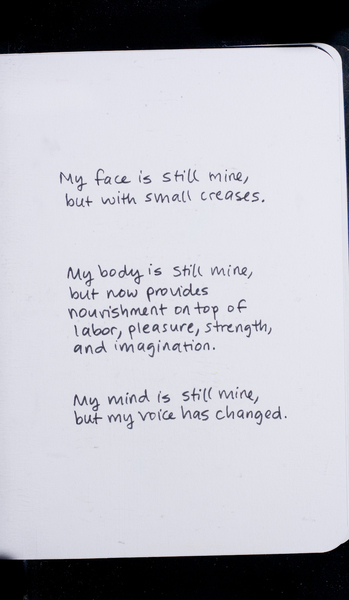 My face is still mine,
but with small creases.
My body is still mine,
but now provides
nourishment on top of
labor, pleasure, strength,
and imagination.
My mind is still mine,
but my voice has changed.